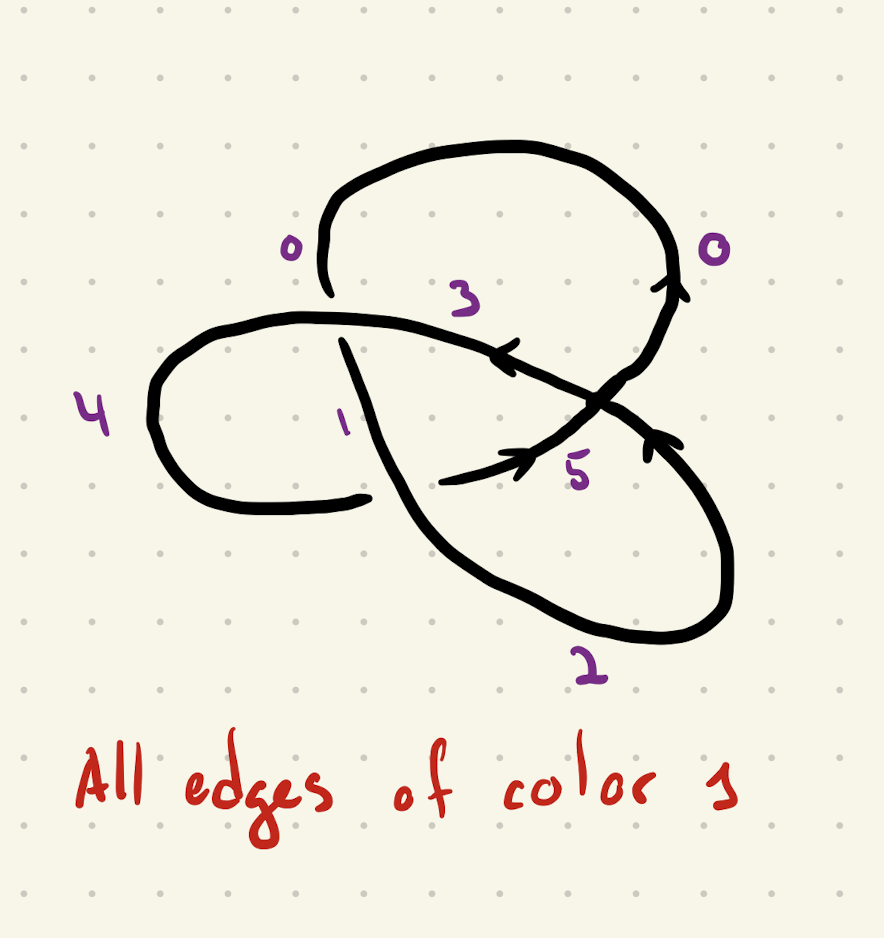 0
0
3
4
1
5
2
All edges of color 1